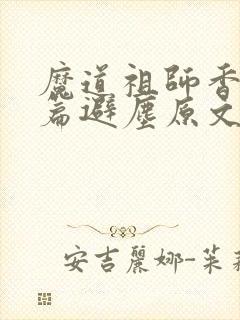 魔道祖師香
篇避塵原文
安吉麗娜-茱莉